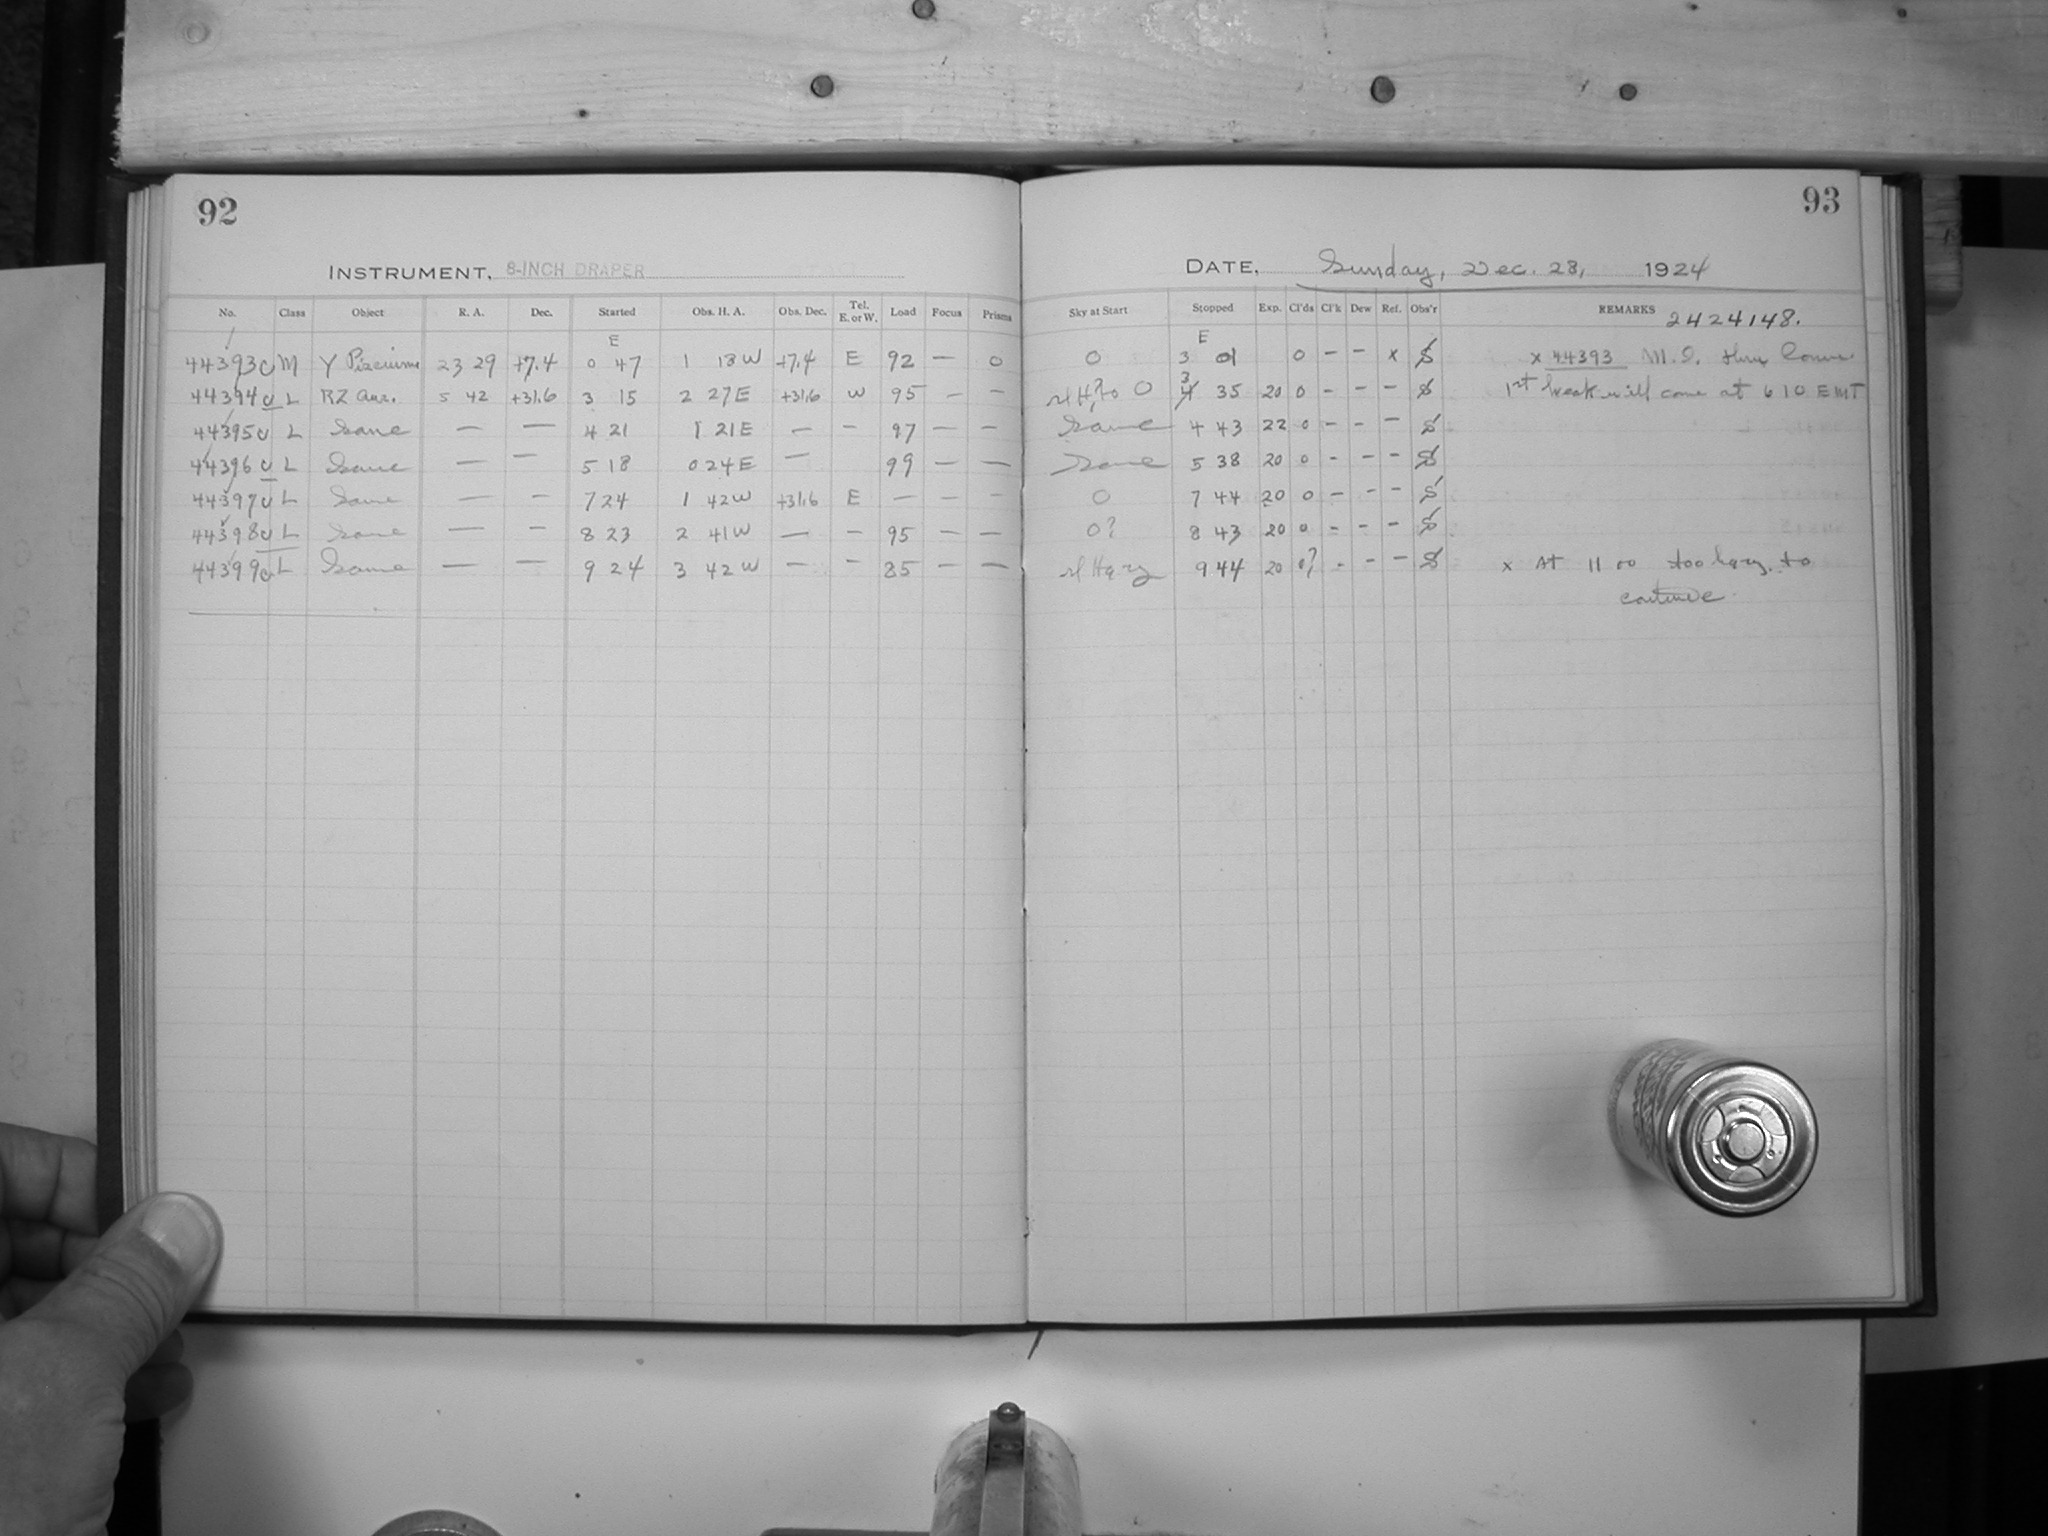 92
INSTRUMENT, 8-INCH DRAPER
No. Class Object R. A. Dec. Started Obs. H. A. Obs. Dec. Tel. E. or W. Load Focus Prisms
E
44393 M Y Piscium 23 29 +7.4 0 47 1 13 W +7.4 E 92 — 0
44394 L RZ Aur. 5 42 +31.6 3 15 2 27 E +31.6 W 95 — —
44395 L Same — — 4 21 1 21 E — — 97 — —
44396 L Same — — 5 18 0 24 E — 99 — —
44397 L Same — — 7 24 1 42 W +31.6 E — — —
44398 L Same — — 8 23 2 41 W — — 95 — —
44399 L Same — — 9 24 3 42 W — — 85 — —
93
DATE, Sunday, Dec. 28, 1924
Sky at Start Stopped Exp. Cl'ds Cl'k Dew Ref. Obs'r REMARKS 2424148.
E
0 3 01 0 — — x S x 44393 M.I. thru
0 3 35 20 0 - - - S 1st weak will come at 6 10 EMT
Same 4 43 22 0 - - - S
Same 5 38 20 0 - - - S
0 7 44 20 0 - - - S
0? 8 43 20 0 - - - S
sl Hazy 9 44 20 0? - - - S x At 11 00 too hazy to
continue